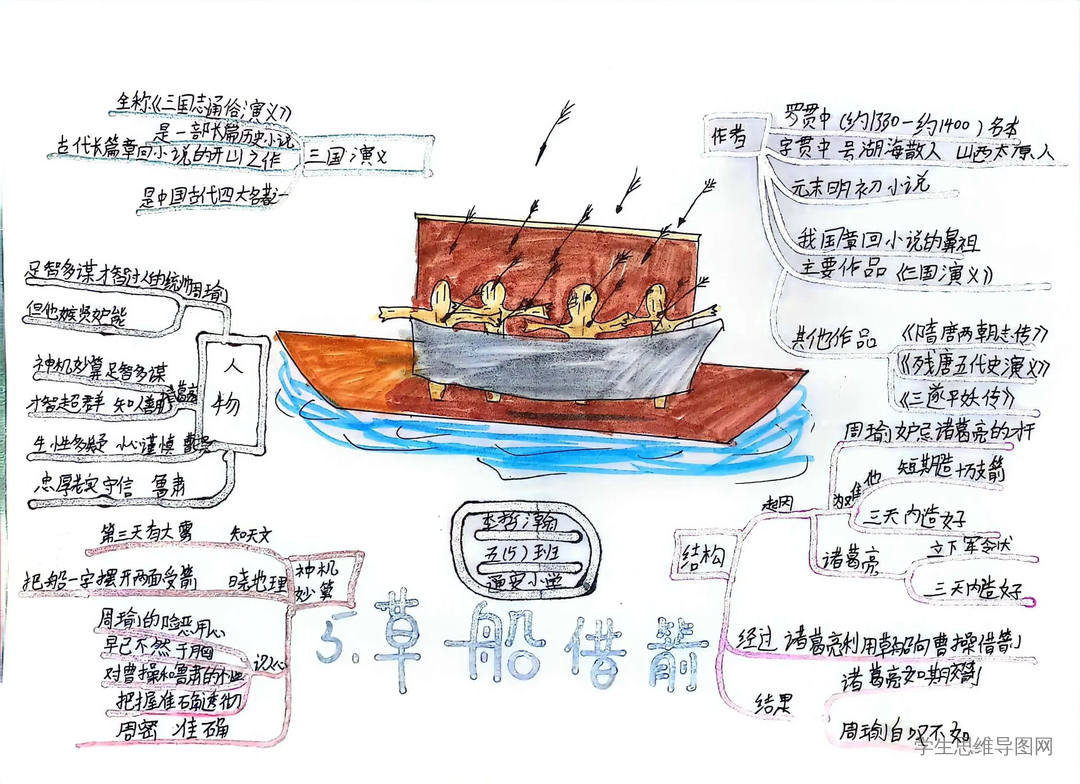 全称《三国志通俗演义》
是一部长篇历史小说
古代长篇章回小说的开山之作
是中国古代四大名著之一
三国演义
作者
罗贯中(约1330-约1400)名本
字贯中 号湖海散人 山西太原人
元末明初小说
我国章回小说的鼻祖
主要作品《三国演义》
其他作品
《隋唐两朝志传》
《残唐五代史演义》
《三遂平妖传》
人物
足智多谋才智过人的统帅周瑜
但他嫉贤妒能
神机妙算足智多谋
才智超群 知人善用
诸葛亮
生性多疑 小心谨慎 曹操
忠厚老实守信 鲁肃
神机妙算
第三天有大雾 知天文
把船一字摆开两面受箭 晓地理
周瑜的险恶用心
早已了然于胸
对曹操和鲁肃的
把握准确透彻
周密 准确
识人心
李哲瀚
五(5)班
小学
5.草船借箭
结构
起因
周瑜妒忌诸葛亮的才干
为难他
短期造十万支箭
三天内造好
诸葛亮
立下军令状
三天内造好
经过 诸葛亮利用草船向曹操借箭
结果
诸葛亮如期交箭
周瑜自叹不如
学生思维导图网